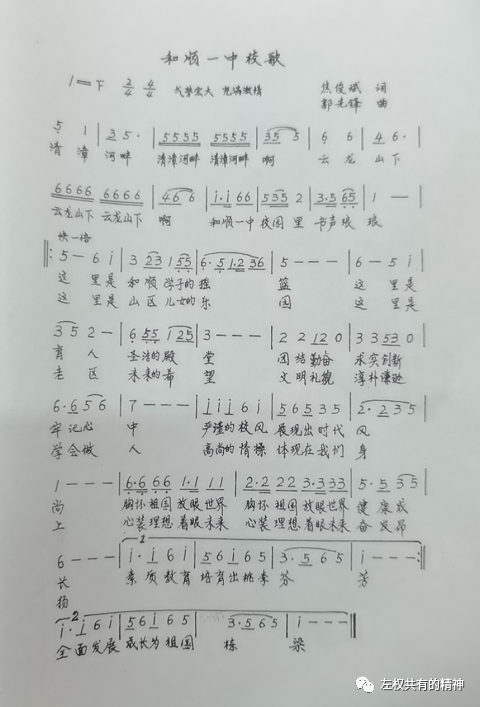 和顺一中校歌
1=下 2/4 4/4 气势宏大 充满激情 焦俊斌 词
郭先锋 曲
5 1 | 3 5· | 5555 5555 | 35 5 | 6 6 | 4 6· |
清漳 河畔 清漳河畔 清漳河畔 啊 云龙 山下
6666 6666 | 46 6 | i·i 66 | 535 2 | 3·5 65 | 1 — |
云龙山下 云龙山下 啊 和顺一中 校园里 书声琅 琅
快一倍
5 — 6 i | 3 23 1 55 | 6·5 1·2 36 | 5 - - - | 6 — 5 i |
这 里是 和顺学子的摇 篮 这 里是
这 里是 山区儿女的乐 园 这 里是
3 5 2 — | 6 55 1 25 | 3 - - - | 2 2 12 0 | 3 3 53 0 |
育人 圣洁的殿 堂 团结勤奋 求实创新
老区 未来的希 望 文明礼貌 淳朴谦逊
6·6 5 6 | 7 - - - | i i i 6 i | 5 6 5 3 5 | 2· 2 3 5 |
牢记心 中 严谨的校风 展现出时代 风
学会做 人 高尚的情操 体现在我们 身
1 - - - | 6·6 66 1·1 11 | 2·2 22 3·3 33 | 5·5 3 5 |
尚 胸怀祖国 放眼世界 胸怀祖国 放眼世界 健康成
上 心装理想 着眼未来 心装理想 着眼未来 奋发昂
6 - - - | 1 i· i 6 i | 5 6 i 6 5 | 3· 5 6 5 | i - - - :||
长 素质教育 培育出桃李芬 芳
扬
2 i· i 6 i | 5 6 i 6 5 | 3·5 6 5 | i - - - ||
全面发展 成长为祖国 栋 梁
左权共有的精神